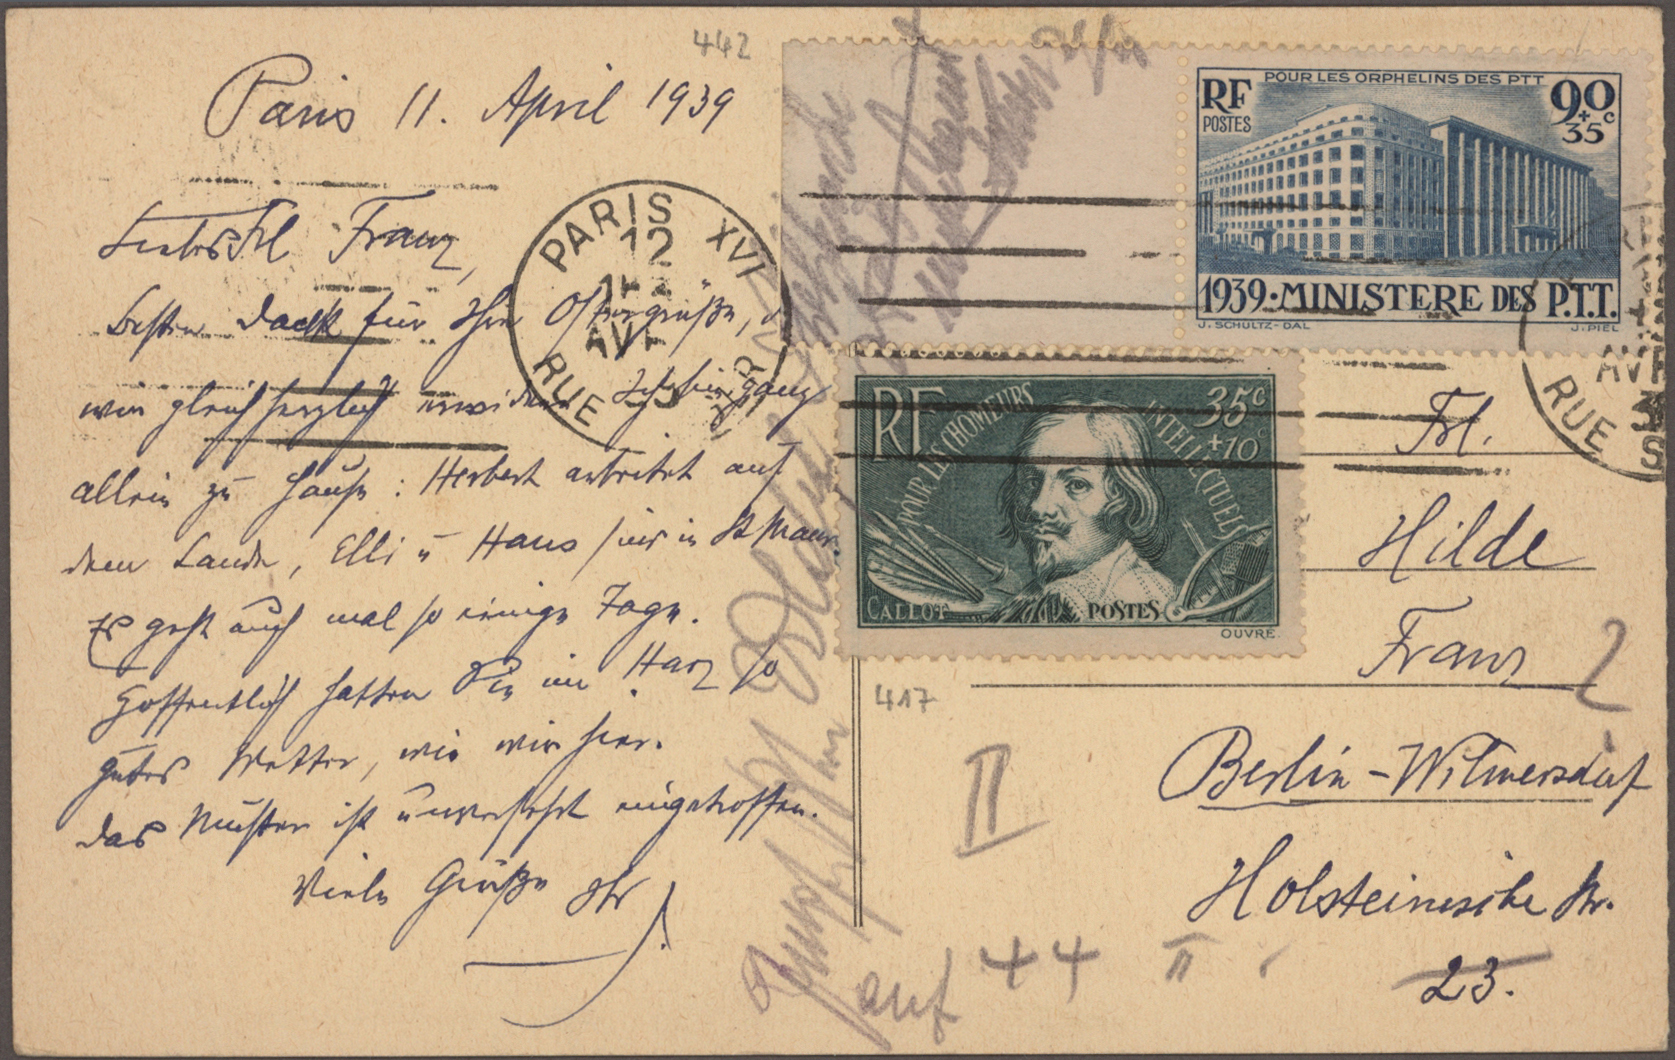 442
Paris 11. April 1939
Liebes Frl Franz,
Besten Dank für Ihre Ostergrüße, d
wir gleich herzlich erwidern. Ich bin ganz
allein zu Hause: Herbert arbeitet auf
dem Lande, Elli u Hans sind in St Maur.
Es geht auch mal so einige Tage.
Hoffentlich hatten Sie im Harz so
gutes Wetter, wie wir hier.
Das Muster ist unversehrt eingetroffen.
Viele Grüße Ihr
PARIS XVI
12
AVR
RUE
POUR LES ORPHELINS DES PTT
RF
POSTES
90
+
35c
1939·MINISTERE DES P.T.T.
J. SCHULTZ-DAL
J. PIEL
RF
POUR LES CHOMEURS INTELLECTUELS
35c
+10c
CALLOT
POSTES
OUVRÉ
AV
RUE
Frl.
Hilde
Franz
2
417
II
Berlin-Wilmersdorf
Holsteinische Str.
23.
auf 44 II